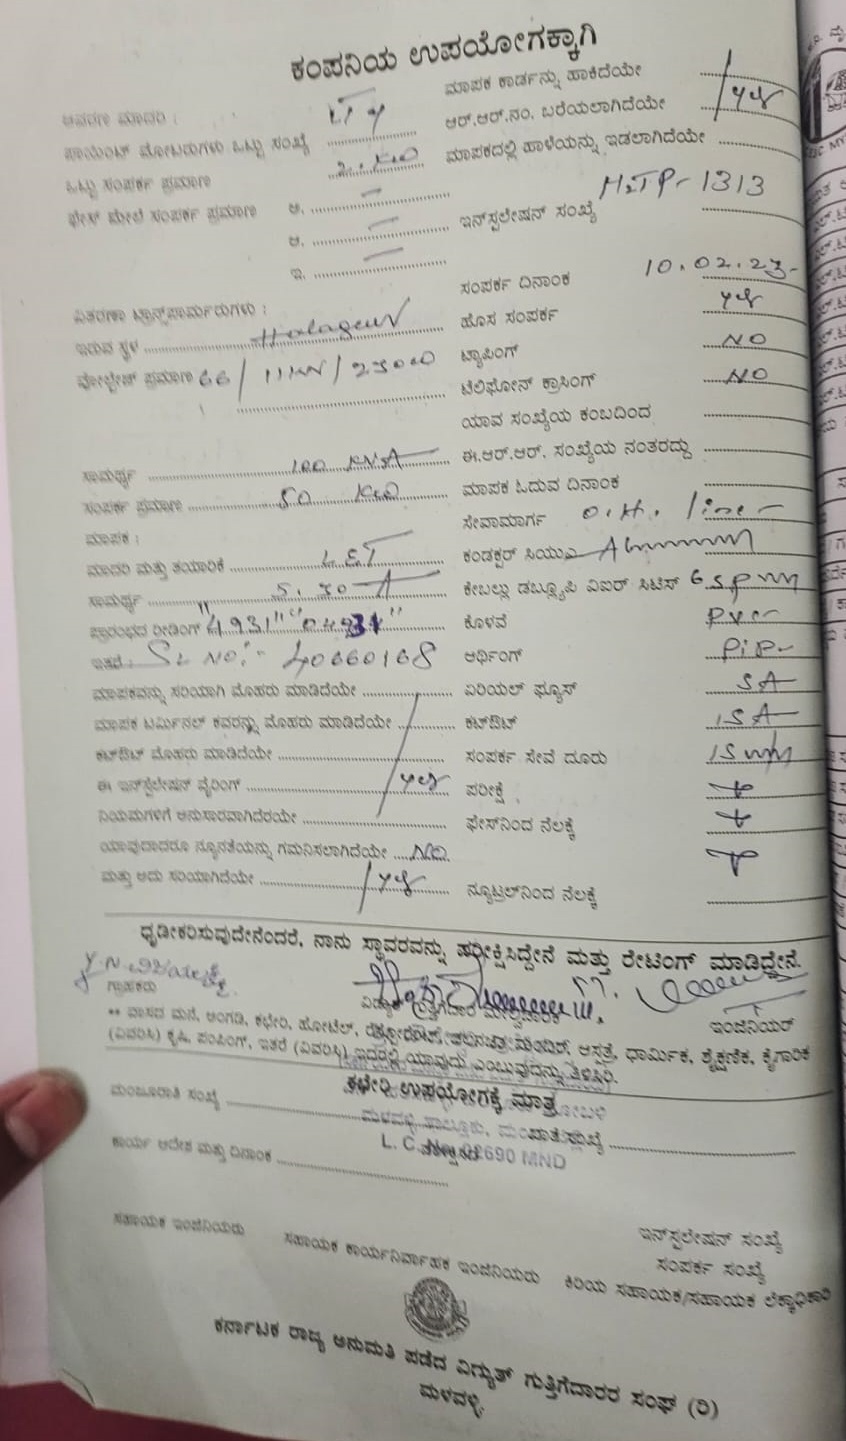 ಕಂಪನಿಯ ಉಪಯೋಗಕ್ಕಾಗಿ
ಆವರಣ ಮಾದರಿ :
ಪಾಯಿಂಟ್ ಮೋಟರುಗಳು ಒಟ್ಟು ಸಂಖ್ಯೆ
ಒಟ್ಟು ಸಂಪರ್ಕ ಪ್ರಮಾಣ
ಫೇಸ್ ಮೇಲೆ ಸಂಪರ್ಕ ಪ್ರಮಾಣ ಆ. –
ಆ. –
ಇ. –
ವಿತರಣಾ ಟ್ರಾನ್ಸ್‌ಫಾರ್ಮರುಗಳು :
ಇರುವ ಸ್ಥಳ Halagur
ವೋಲ್ಟೇಜ್ ಪ್ರಮಾಣ 66/11KV/
ಸಾಮರ್ಥ್ಯ 100 KVA
ಸಂಪರ್ಕ ಪ್ರಮಾಣ 50
ಮಾಪಕ :
ಮಾದರಿ ಮತ್ತು ತಯಾರಿಕೆ L&T
ಸಾಮರ್ಥ್ಯ 5.30-A
ಪ್ರಾರಂಭದ ರೀಡಿಂಗ್ "4931"
ಇತರೆ : SL NO:- 40660168
ಮಾಪಕವನ್ನು ಸರಿಯಾಗಿ ಮೊಹರು ಮಾಡಿದೆಯೇ
ಮಾಪಕ ಟರ್ಮಿನಲ್ ಕವರನ್ನು ಮೊಹರು ಮಾಡಿದೆಯೇ
ಕಟ್‌ಔಟ್ ಮೊಹರು ಮಾಡಿದೆಯೇ
ಈ ಇನ್‌ಸ್ಟಲೇಷನ್ ವೈರಿಂಗ್ yes
ನಿಯಮಗಳಿಗೆ ಅನುಸಾರವಾಗಿದೆಯೇ
ಯಾವುದಾದರೂ ನ್ಯೂನತೆಯನ್ನು ಗಮನಿಸಲಾಗಿದೆಯೇ NO.
ಮತ್ತು ಅದು ಸರಿಯಾಗಿದೆಯೇ yes
ಮಾಪಕ ಕಾರ್ಡನ್ನು ಹಾಕಿದೆಯೇ
ಆರ್.ಆರ್.ನಂ. ಬರೆಯಲಾಗಿದೆಯೇ yes
ಮಾಪಕದಲ್ಲಿ ಹಾಳೆಯನ್ನು ಇಡಲಾಗಿದೆಯೇ
ಇನ್‌ಸ್ಟಲೇಷನ್ ಸಂಖ್ಯೆ 1313
ಸಂಪರ್ಕ ದಿನಾಂಕ 10.02.23-
ಹೊಸ ಸಂಪರ್ಕ yes
ಟ್ಯಾಪಿಂಗ್ NO
ಟೆಲಿಫೋನ್ ಕ್ರಾಸಿಂಗ್ NO
ಯಾವ ಸಂಖ್ಯೆಯ ಕಂಬದಿಂದ
ಈ.ಆರ್.ಆರ್. ಸಂಖ್ಯೆಯ ನಂತರದ್ದು
ಮಾಪಕ ಓದುವ ದಿನಾಂಕ
ಸೇವಾಮಾರ್ಗ O.H. line-
ಕಂಡಕ್ಟರ್ ಸಿಯು/ಎ
ಕೇಬಲ್ಲು ಡಬ್ಲ್ಯೂಪಿ ವಿಐಆರ್ ಸಿಟಿಎಸ್
ಕೊಳವೆ PVC
ಆರ್ಥಿಂಗ್ PiP-
ಏರಿಯಲ್ ಫ್ಯೂಸ್ 5A
ಕಟ್‌ಔಟ್ 15A
ಸಂಪರ್ಕ ಸೇವೆ ದೂರು
ಪರೀಕ್ಷೆ
ಫೇಸ್‌ನಿಂದ ನೆಲಕ್ಕೆ
ನ್ಯೂಟ್ರಲ್‌ನಿಂದ ನೆಲಕ್ಕೆ
ಧೃಡೀಕರಿಸುವುದೇನೆಂದರೆ, ನಾನು ಸ್ಥಾವರವನ್ನು ಪರೀಕ್ಷಿಸಿದ್ದೇನೆ ಮತ್ತು ರೇಟಿಂಗ್ ಮಾಡಿದ್ದೇನೆ.
ಗ್ರಾಹಕರು
ಇಂಜಿನಿಯರ್
** ವಾಸದ ಮನೆ, ಅಂಗಡಿ, ಕಛೇರಿ, ಹೋಟೆಲ್, ಮಂದಿರ, ಆಸ್ಪತ್ರೆ, ಧಾರ್ಮಿಕ, ಶೈಕ್ಷಣಿಕ, ಕೈಗಾರಿಕೆ
(ವಿವರಿಸಿ) ಕೃಷಿ, ಪಂಪಿಂಗ್, ಇತರೆ (ವಿವರಿಸಿ) ಇದರಲ್ಲಿ ಯಾವುದು ಎಂಬುವುದನ್ನು ತಿಳಿಸಿರಿ.
ಕಛೇರಿ ಉಪಯೋಗಕ್ಕೆ ಮಾತ್ರ
ಮಂಜೂರಾತಿ ಸಂಖ್ಯೆ
ಕಾರ್ಯ ಆದೇಶ ಮತ್ತು ದಿನಾಂಕ
ಇನ್‌ಸ್ಟಲೇಷನ್ ಸಂಖ್ಯೆ
ಸಂಪರ್ಕ ಸಂಖ್ಯೆ
ಸಹಾಯಕ ಇಂಜಿನಿಯರು ಸಹಾಯಕ ಕಾರ್ಯನಿರ್ವಾಹಕ ಇಂಜಿನಿಯರು ಕಿರಿಯ ಸಹಾಯಕ/ಸಹಾಯಕ ಲೆಕ್ಕಾಧಿಕಾರಿ
ಕರ್ನಾಟಕ ರಾಜ್ಯ ಅನುಮತಿ ಪಡೆದ ವಿದ್ಯುತ್ ಗುತ್ತಿಗೆದಾರರ ಸಂಘ (ರಿ)
ಮಳವಳ್ಳಿ.